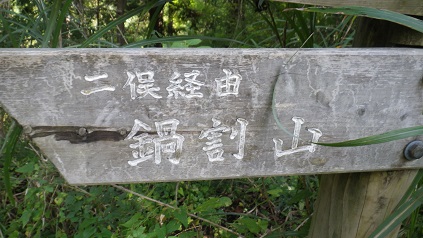 二俣経由
鍋割山